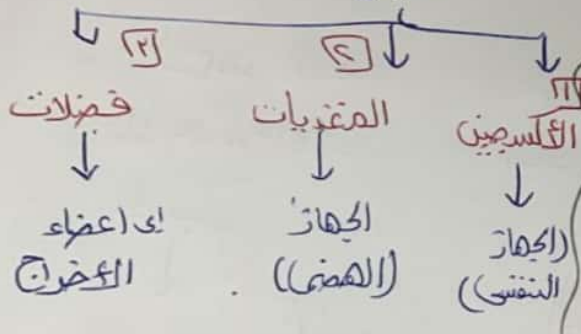 [١]
الأكسجين
(الجهاز
التنفسي)
[٢]
المغذيات
الجهاز
(الهضمي)
[٣]
فضلات
إلى أعضاء
الأخراج